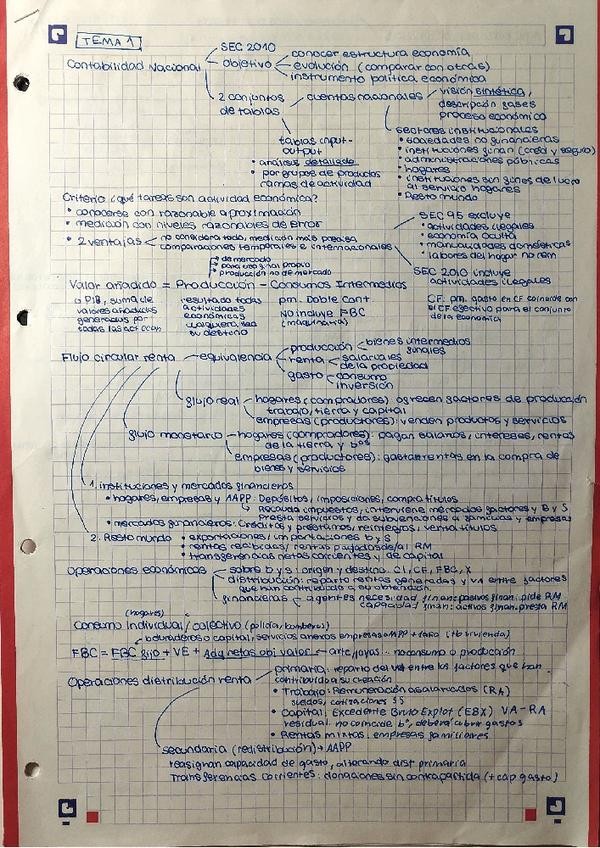 TEMA 1
Contabilidad Nacional
SEC 2010
objetivo
conocer estructura economía
evolución (comparar con otras)
instrumento política económica
2 conjuntos de tablas
cuentas nacionales
visión sintética,
descripción fases
proceso económico
tablas input-
output
• análisis detallado
• por grupos de productos
ramas de actividad
sectores institucionales
• sociedades no financieras
• instituciones finan (cred y seguro)
• administraciones públicas
• hogares
• instituciones sin fines de lucro
al servicio hogares
• Resto mundo
Criterio ¿qué tareas son actividad económica?
• conocerse con razonable aproximación
• medición con niveles razonables de error
• 2 ventajas
no considera todo, medición más precisa
comparaciones temporales e internacionales
SEC 95 excluye
• actividades ilegales
• economía oculta
• manualidades domésticas
• labores del hogar no rem
SEC 2010 incluye
actividades ilegales
de mercado
para uso final propio
producción no de mercado
Valor añadido = Producción - Consumos Intermedios
o PIB, suma de
valores añadidos
generados por
todas las act econ
resultado todas
actividades
económicas
cualquiera sea
su destino
pm. Doble cont.
No incluye FBC
(maquinaria)
CF. pm. gasto en CF coincide con
el CF efectivo para el conjunto
de la economía
Flujo circular renta
equivalencia
producción
bienes intermedios
finales
renta
salariales
de la propiedad
gasto
consumo
inversión
flujo real
hogares (compradores) ofrecen factores de producción
trabajo, tierra y capital
empresas (productores): venden productos y servicios
flujo monetario
hogares (compradores): pagan salarios, intereses, rentas
de la tierra y bºs
empresas (productores): gastan rentas en la compra de
bienes y servicios
1. instituciones y mercados financieros
• hogares, empresas y AAPP: Depósitos, imposiciones, compra títulos
Recauda impuestos, interviene mercados factores y B y S
presta servicios y da subvenciones a familias y empresas
• mercados financieros: Créditos y préstamos, reintegros, venta títulos
2. Resto mundo
• exportaciones/importaciones b y s
• rentas recibidas/rentas pagadas de/al RM
• transferencias netas corrientes y de capital
Operaciones económicas
sobre b y s: origen y destino. CI, CF, FBC, X
distribución: reparto rentas generadas y VA entre factores
que han contribuido a su obtención.
financieras
agentes necesidad finan: pasivos finan. pide RM
capacidad finan: activos finan. presta RM
(hogares)
Consumo individual/colectivo (policía, bomberos)
b duraderos o capital, servicios anexos empresas o AAPP + fam (tb vivienda)
FBC = FBC fijo + VE + Adq netas obj valor
arte, joyas... no consumo o producción
Operaciones distribución renta
primaria: reparto del VA entre los factores que han
contribuido a su creación
• Trabajo: Remuneración asalariados (RA)
sueldos, cotizaciones SS
• Capital. Excedente Bruto Explot (EBX). VA-RA
residual. no coincide bº, deberá cubrir gastos
• Rentas mixtas: empresas familiares
secundaria (redistribución) → AAPP
reasignan capacidad de gasto, alterando dist primaria
Transferencias corrientes: donaciones sin contrapartida (+cap gasto)